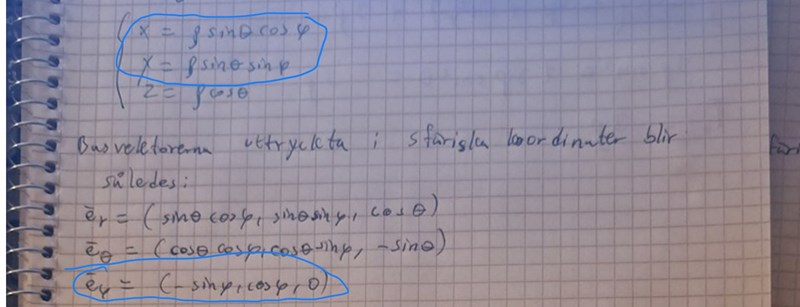 x = ρ sinθ cosφ
y = ρ sinθ sinφ
z = ρ cosθ
Basvektorerna uttryckta i sfäriska koordinater blir
således:
ē_r = (sinθ cosφ, sinθ sinφ, cosθ)
ē_θ = (cosθ cosφ, cosθ sinφ, -sinθ)
ē_φ = (-sinφ, cosφ, 0)